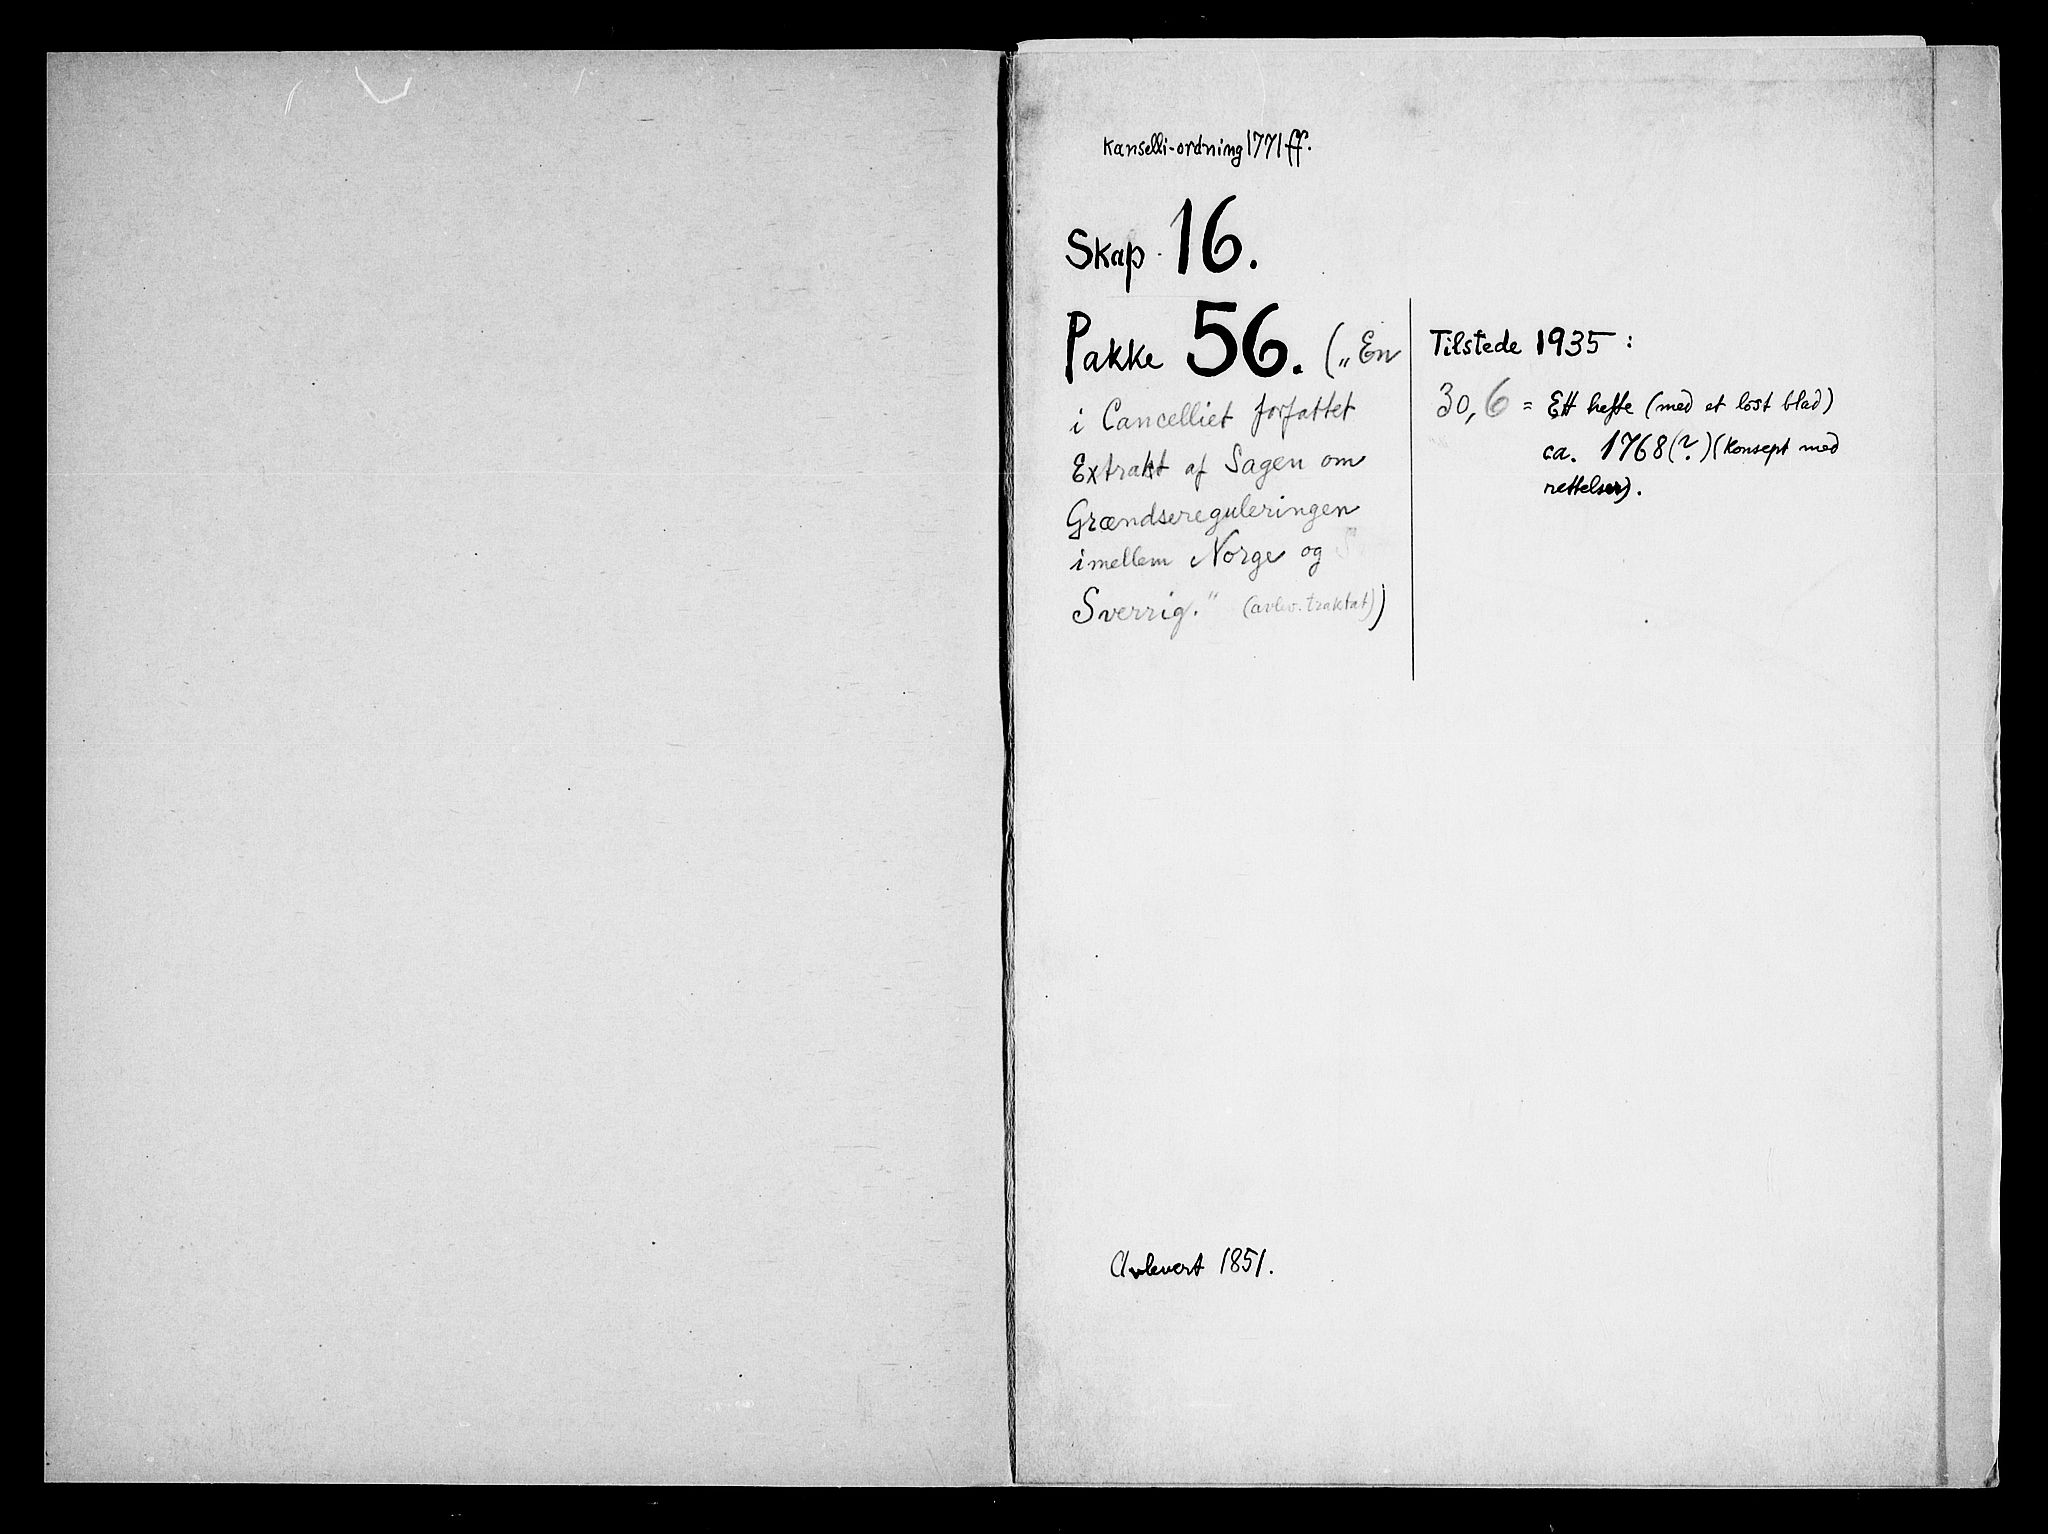 Kanselli-ordning 1771 ff.
Skap 16.
Pakke 56. („En
i Cancelliet forfattet
Extrakt af Sagen om
Grændsereguleringen
imellem Norge og
Sverrig." (avlev. traktat))
Tilstede 1935:
30,6 = Ett hefte (med et løst blad)
ca. 1768(?) (Konsept med
rettelser).
Avlevert 1851.